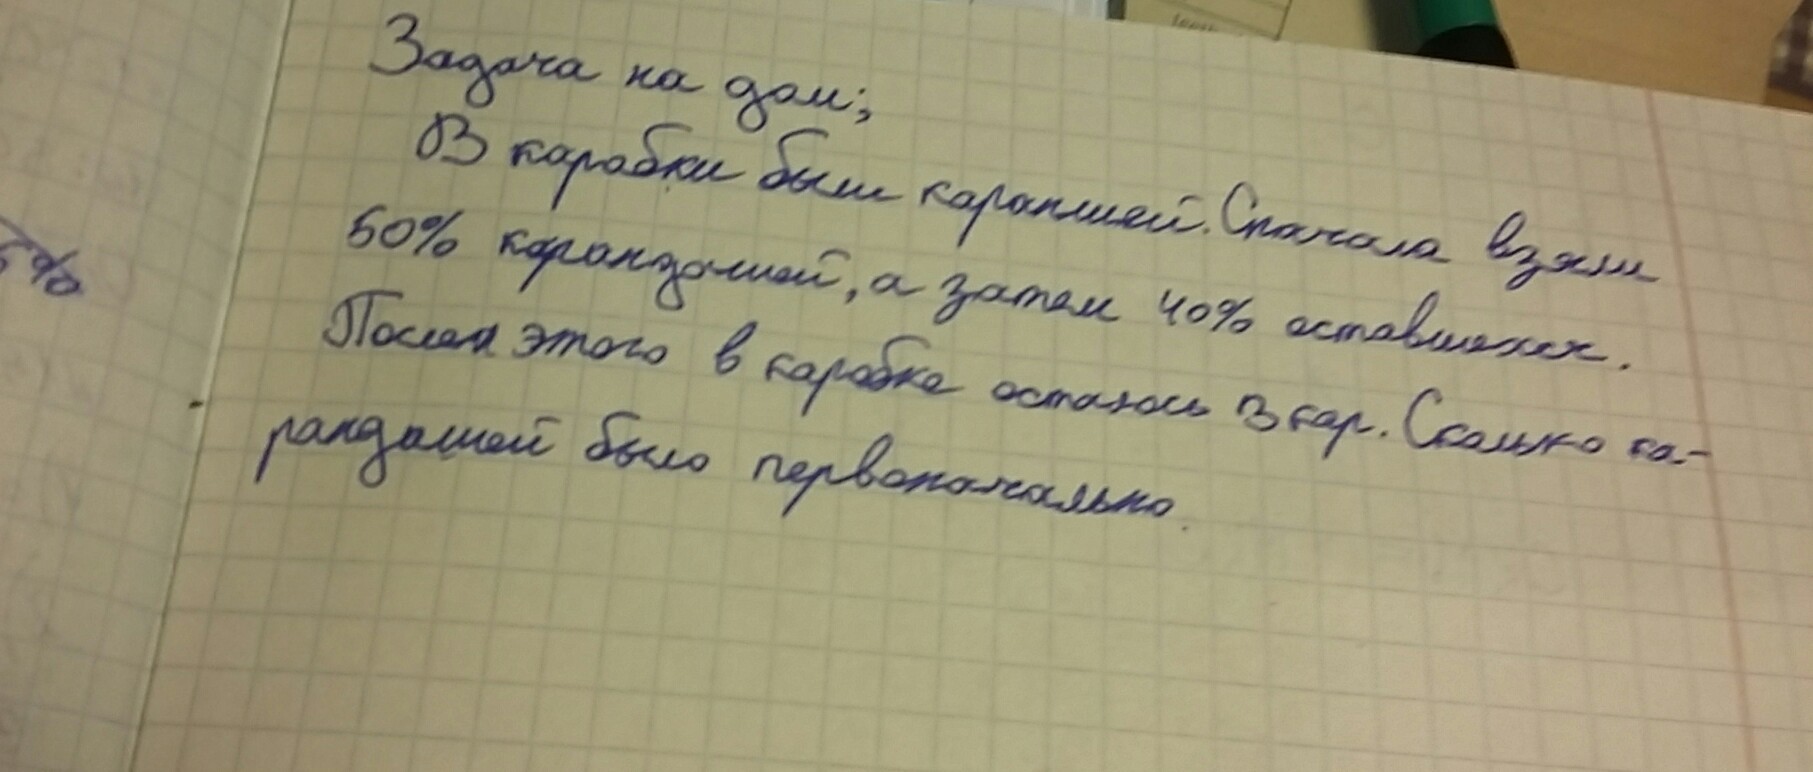 Задача на дом;
В каробки были карапшей. Сначала взяли
50% карандашей, а затем 40% оставшихся.
После этого в каробке осталось 3 кар. Сколько ка-
рандашей было первоначально.
%